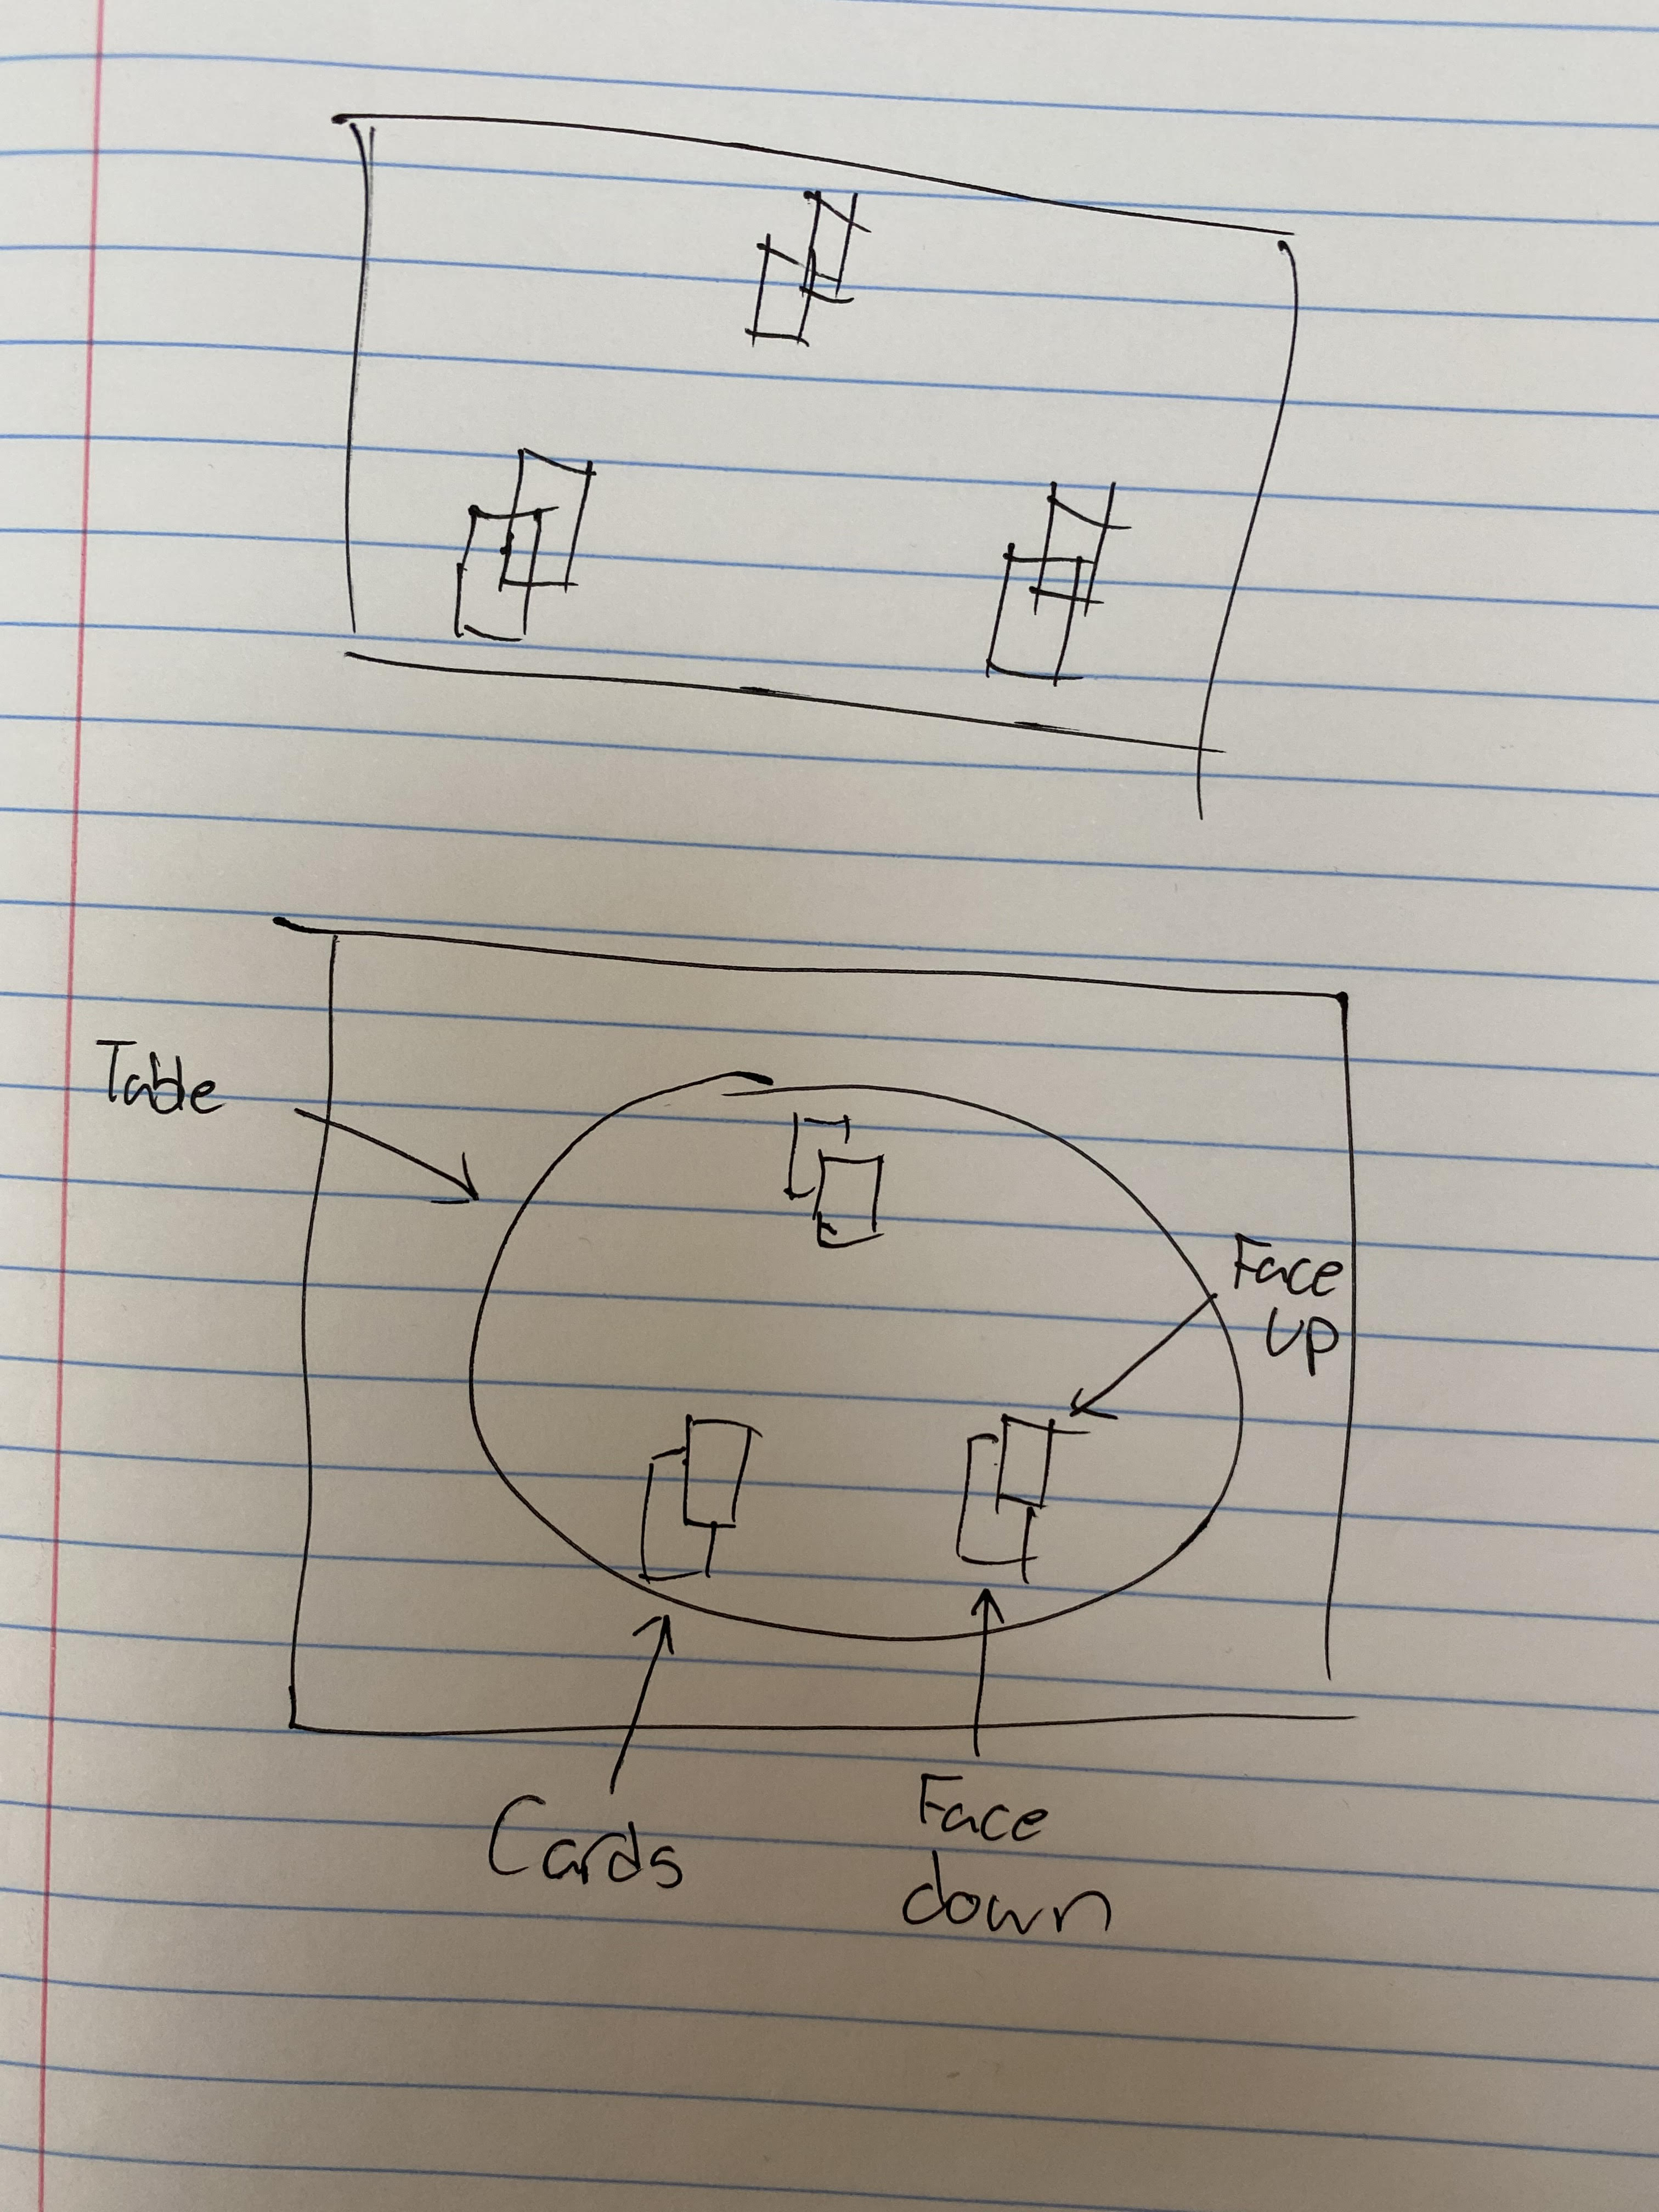 Table
Face
up
Cards
Face
down